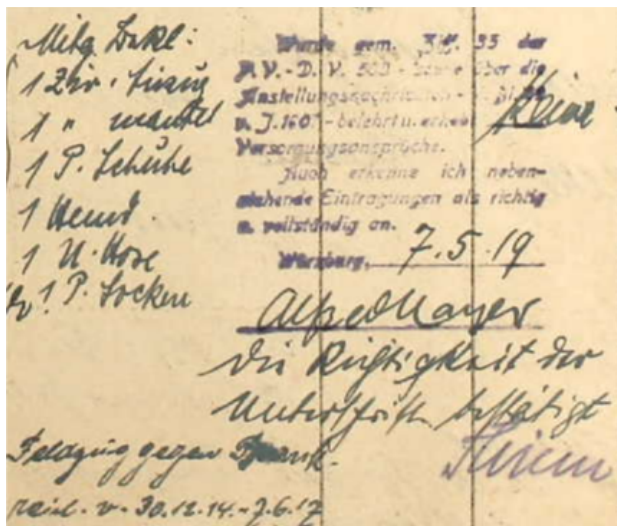 Mitg. Bekl:
1 Ziv. Anzug
1 " mantel
1 P. Schuhe
1 Hemd
1 U. Hose
1 P. Socken
Wurde gem. Ziff. 35 der
P. V. - D. V. über die
Anstellungsnachrichten
v. J. 160 - belehrt u. erhebt keine
Versorgungsansprüche.
Auch erkenne ich neben-
stehende Eintragungen als richtig
u. vollständig an.
Würzburg, 7.5.19
Alfred Mayer
Die Richtigkeit der
Unterschrift bestätigt
Feldzug gegen Frank-
reich v. 30.12.14.-7.6.17